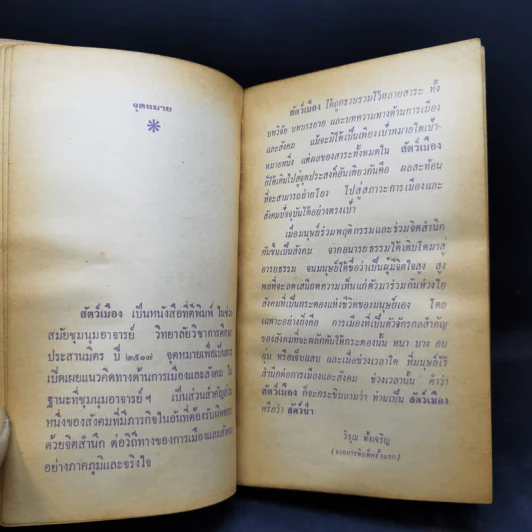 จุดหมาย
สัตว์เมือง เป็นหนังสือที่ตีพิมพ์ ในช่วง
สมัยชุมนุมอาจารย์ วิทยาลัยวิชาการศึกษา
ประสานมิตร ปี ๒๕๑๗ จุดหมายเพื่อเป็นการ
เปิดเผยแนวคิดทางด้านการเมืองและสังคม ใน
ฐานะที่ชุมนุมอาจารย์ฯ เป็นส่วนสำคัญส่วน
หนึ่งของสังคมที่มีภารกิจในอันที่ต้องรับผิดชอบ
ด้วยจิตสำนึก ต่อวิถีทางของการเมืองและสังคม
อย่างภาคภูมิและจริงใจ
สัตว์เมือง ได้ถูกรวบรวมไว้หลายสาระ ทั้ง
บทวิจัย บทบรรยาย และบทความทางด้านการเมือง
และสังคม แม้จะมิได้เป็นเพียงเป้าหมายใดเป้า-
หมายหนึ่ง แต่ผลของสาระทั้งหมดใน สัตว์เมือง
ก็ได้เดินไปสู่จุดประสงค์อันเดียวกันคือ ผลสะท้อน
ที่จะสามารถย้ายโยง ไปสู่สภาวะการเมืองและ
สังคมปัจจุบันได้อย่างตรงเป้า
เมื่อมนุษย์ร่วมพฤติกรรมและร่วมจิตสำนึก
กันขึ้นเป็นสังคม จากอนารยธรรมได้เติบโตมาสู่
อารยธรรม จนมนุษย์ได้ชื่อว่าเป็นผู้มีจิตใจสูง สูง
พอที่จะลดเสนียดความเห็นแก่ตัวมาร่วมกันห่วงใย
สังคมที่เป็นกระดองแห่งชีวิตของมนุษย์เอง โดย
เฉพาะอย่างยิ่งคือ การเมืองที่เป็นตัวจักรกลสำคัญ
ของสังคมที่จะผลักดันให้กระดองนั้น หนา บาง อบ
อุ่น หรือเย็นแสบ และเมื่อช่วงเวลาใด ที่มนุษย์ไร้
สำนึกต่อการเมืองและสังคม ช่วงเวลานั้น คำว่า
สัตว์เมือง ก็จะกระซิบถามว่า ท่านเป็น สัตว์เมือง
หรือว่า สัตว์ป่า
วิรุณ ตั้งเจริญ
(จากการพิมพ์ครั้งแรก)